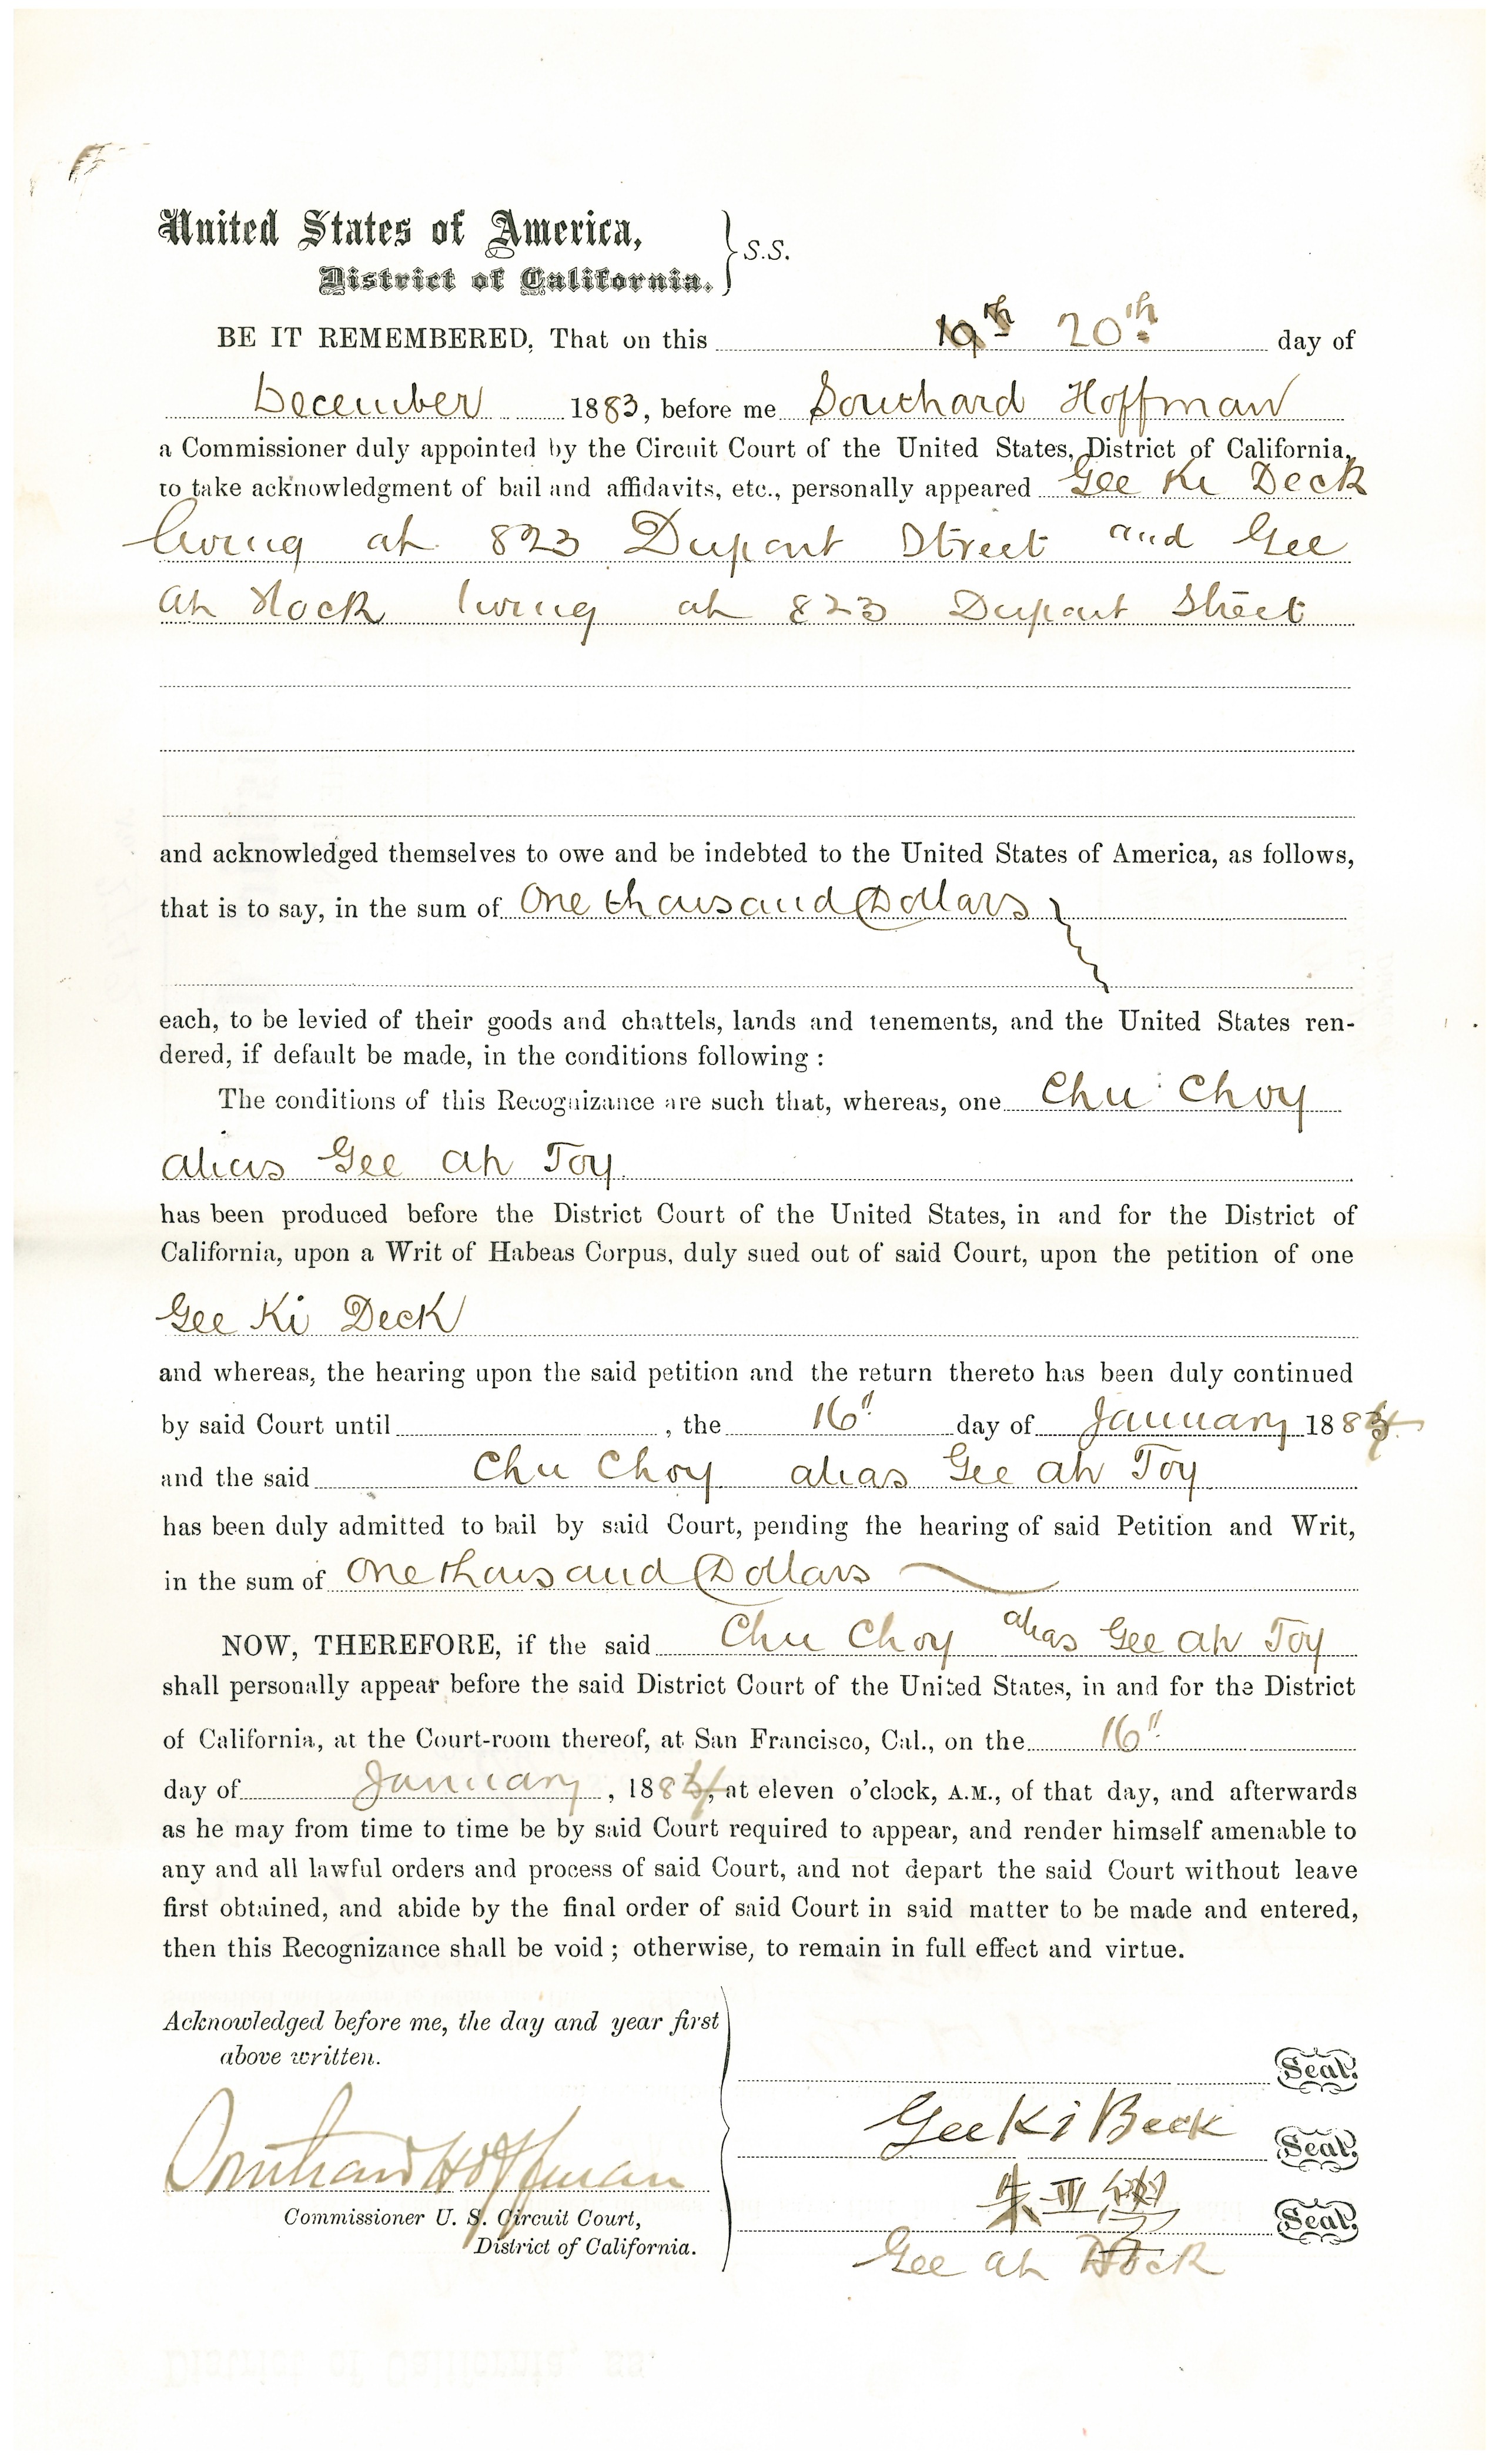 United States of America,
District of California. } S.S.
BE IT REMEMBERED, That on this 19th 20th day of
December 1883, before me Southard Hoffman
a Commissioner duly appointed by the Circuit Court of the United States, District of California,
to take acknowledgment of bail and affidavits, etc., personally appeared Gee Ki Deck
living at 823 Dupont Street and Gee
Ah Hock living at 823 Dupont Street
and acknowledged themselves to owe and be indebted to the United States of America, as follows,
that is to say, in the sum of One thousand Dollars
each, to be levied of their goods and chattels, lands and tenements, and the United States ren-
dered, if default be made, in the conditions following :
The conditions of this Recognizance are such that, whereas, one Chu Choy
alias Gee Ah Toy
has been produced before the District Court of the United States, in and for the District of
California, upon a Writ of Habeas Corpus, duly sued out of said Court, upon the petition of one
Gee Ki Deck
and whereas, the hearing upon the said petition and the return thereto has been duly continued
by said Court until , the 16" day of January 1884
and the said Chu Choy alias Gee Ah Toy
has been duly admitted to bail by said Court, pending the hearing of said Petition and Writ,
in the sum of One thousand Dollars
NOW, THEREFORE, if the said Chu Choy alias Gee Ah Toy
shall personally appear before the said District Court of the United States, in and for the District
of California, at the Court-room thereof, at San Francisco, Cal., on the 16"
day of January , 1884, at eleven o'clock, A.M., of that day, and afterwards
as he may from time to time be by said Court required to appear, and render himself amenable to
any and all lawful orders and process of said Court, and not depart the said Court without leave
first obtained, and abide by the final order of said Court in said matter to be made and entered,
then this Recognizance shall be void ; otherwise, to remain in full effect and virtue.
Acknowledged before me, the day and year first
above written.
Seal.
Gee Ki Beck Seal.
Southard Hoffman
朱亚學 Seal.
Commissioner U. S. Circuit Court,
District of California.
Gee Ah Hock